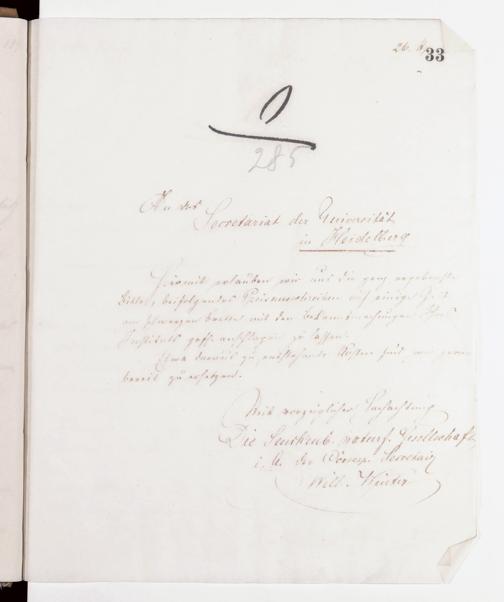 26.
33
285
An das
Secretariat der Universität
in Heidelberg
Hiermit erlauben wir uns die ganz ergebenste
Bitte, beifolgendes auf einige Zeit
am schwarzen Brette mit den Bekanntmachungen Ihres
Instituts gefl. anschlagen zu lassen.
Etwa daraus zu entstehende Kosten sind wir gerne
bereit zu ersetzen.
Mit vorzüglicher Hochachtung
Die Senckenb. naturf. Gesellschaft
i. A. der Corresp. Secretair
Wilh. Winter